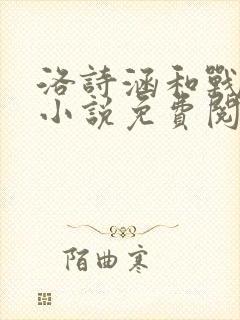 洛詩涵和戰
小說免費閱
陌曲寒